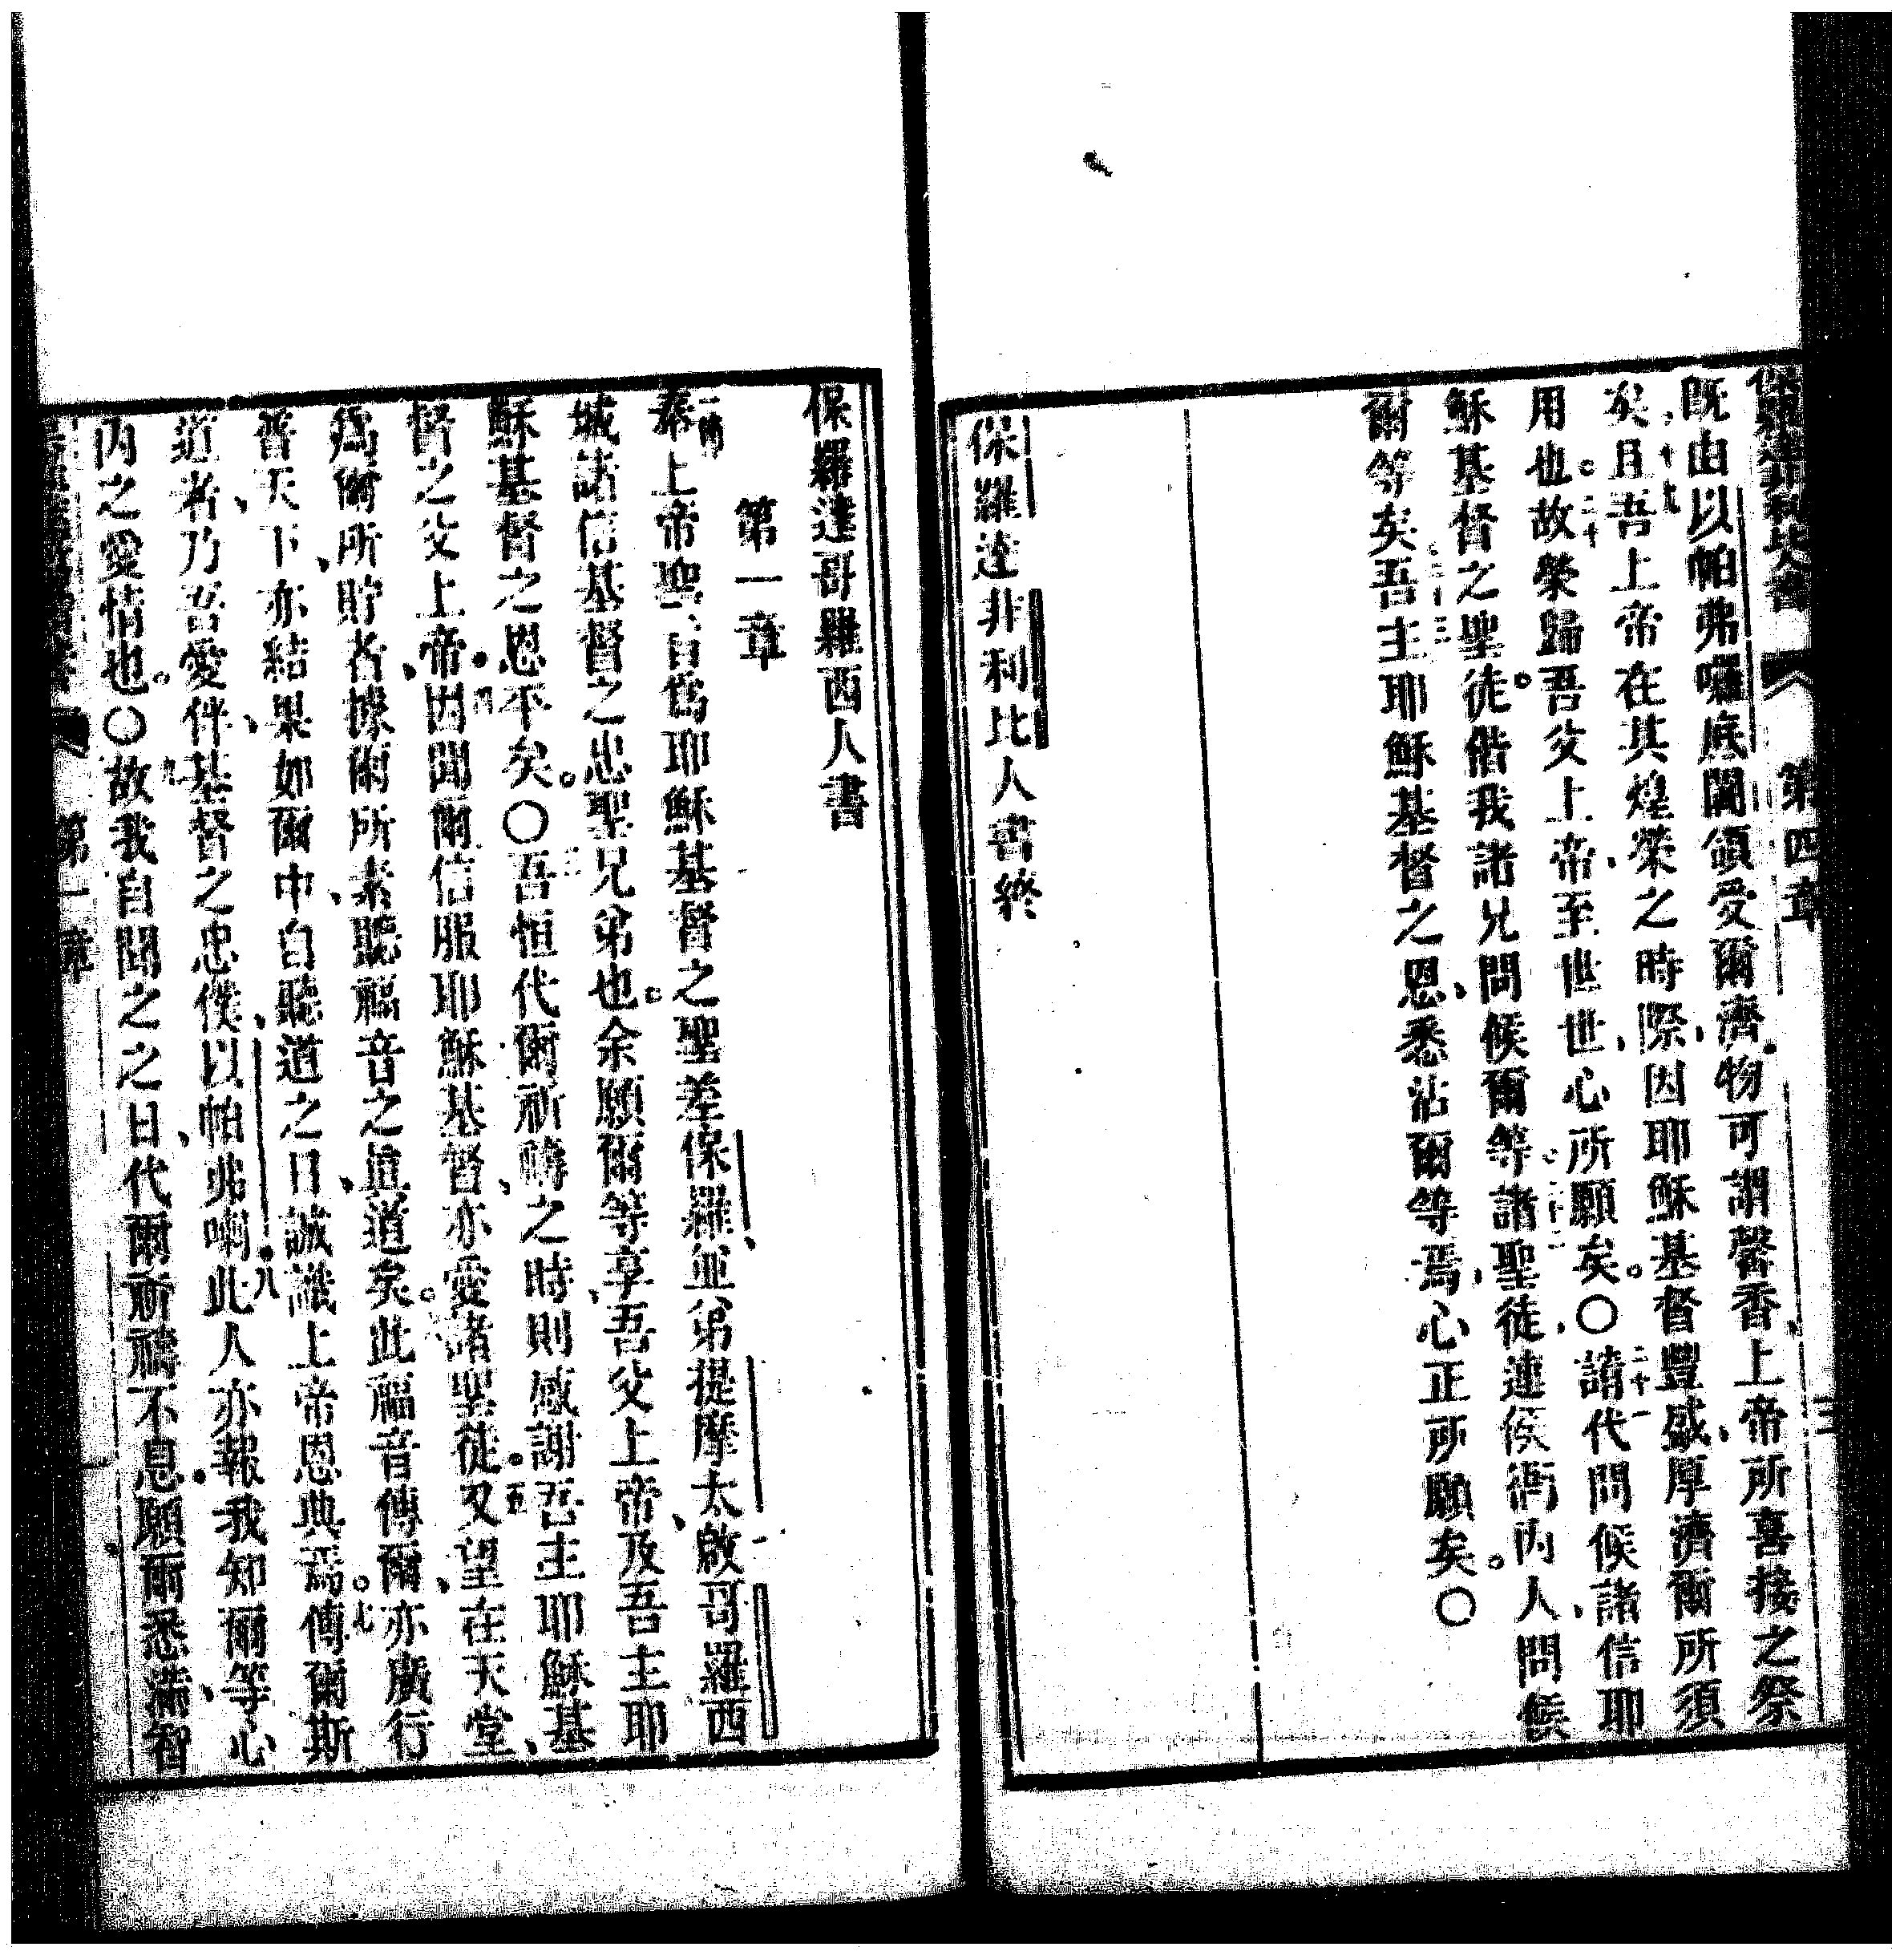 保羅達非利比人書 第四章 三
既由以帕弗囉底閫領受爾濟物可謂馨香上帝所喜接之祭
矣十九且吾上帝在其煌榮之時際因耶穌基督豐盛厚濟爾所須
用也二十故榮歸吾父上帝至世世心所願矣〇二十一請代問候諸信耶
穌基督之聖徒偕我諸兄問候爾等二十二諸聖徒連侯衙內人問候
爾等矣二十三吾主耶穌基督之恩悉沾爾等焉心正所願矣〇
保羅達非利比人書終
保羅達哥羅西人書
第一章
一二節奉上帝聖旨為耶穌基督之聖差保羅並弟提摩太啟哥羅西
城諸信基督之忠聖兄弟也余願爾等享吾父上帝及吾主耶
穌基督之恩平矣〇三吾恒代爾祈禱之時則感謝吾主耶穌基
督之父上帝四因聞爾信服耶穌基督亦愛諸聖徒五又望在天堂
為爾所貯者據爾所素聽福音之真道矣六此福音傳爾亦廣行
普天下亦結果如爾中自聽道之日誠識上帝恩典焉七傳爾斯
道者乃吾愛伴基督之忠僕以帕弗喇八此人亦報我知爾等心
內之愛情也〇九故我自聞之之日代爾祈禱不息願爾悉滿智
第一章 一